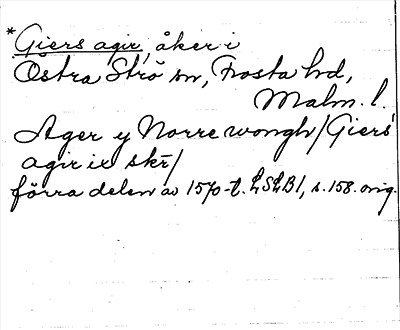 *Giers agir, åker i
Östra Strö sn, Frosta hd,
Malm. l.
Ager y Norre wongh/Giers
agir ix skr/
förra delen av 1570-t. LSLB1, s. 158. orig.